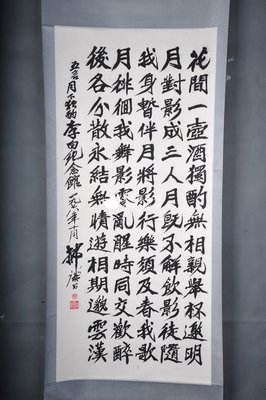 花間一壺酒獨酌無相親舉杯邀明
月對影成三人月既不解飲影徒隨
我身暫伴月將影行樂須及春我歌
月徘徊我舞影零亂醒時同交歡醉
後各分散永結無情遊相期邈雲漢
五言月下獨酌李白紀念館一九八年十月